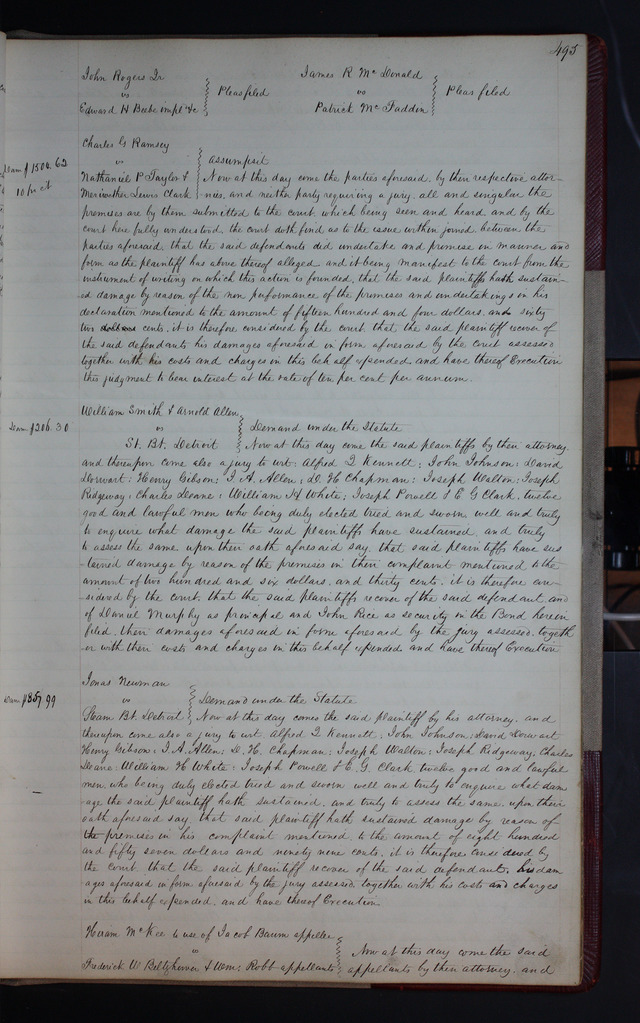 495
John Rogers Jr
vs
Edward H Beebe impl &c
Pleas filed
James R McDonald
vs
Patrick McFaddin
Pleas filed
Charles G Ramsey
vs
Nathaniel P Taylor &
Meriwether Lewis Clark
Dam $1504.62
10 pr ct
Assumpsit
Now at this day come the parties aforesaid, by their respective attor-
nies, and neither party requiring a jury, all and singular the
premises are by them submitted to the court, which being seen and heard and by the
court here fully understood, the court doth find as to the issue within joined between the
parties aforesaid that the said defendants did undertake and promise in manner and
form as the plaintiff has above thereof alleged and it being manifest to the court from the
instrument of writing on which this action is founded, that the said plaintiffs hath sustain-
ed damage by reason of the non performance of the promises and undertakings in his
declaration mentioned to the amount of fifteen hundred and four dollars, and sixty
two dollars cents, it is therefore considered by the court that the said plaintiff recover of
the said defendants his damages aforesaid in form aforesaid by the court assessed
together with his costs and charges in this behalf expended and have thereof Execution
this judgment to bear interest at the rate of ten per cent per annum.
William Smith & Arnold Allen
vs
St. Bt. Detroit
Dam $206.30
Demand under the Statute
Now at this day come the said plaintiffs by their attorney
and thereupon come also a jury to wit: Alfred T Kennett; John Johnson; David
Dorwart; Henry Gibson; I A. Allen; D. H Chapman; Joseph Walton; Joseph
Ridgeway; Charles Deane; William H White; Joseph Powell & E G Clark, twelve
good and lawful men who being duly elected tried and sworn, well and truly
to enquire what damage the said plaintiffs have sustained, and truly
to assess the same upon their oath aforesaid say, that said plaintiffs have sus
-tained damage by reason of the premises in their complaint mentioned to the
amount of two hundred and six dollars, and thirty cents, it is therefore con-
-sidered by the court, that the said plaintiffs recover of the said defendant, and
of Daniel Murphy as principal and John Rice as security in the Bond herein
filed, their damages aforesaid in form aforesaid by the jury assessed, togeth
-er with their costs and charges in this behalf expended and have thereof Execution
Jonas Newman
vs
Steam Bt. Detroit
Dam $857.99
Demand under the Statute
Now at this day comes the said plaintiff by his attorney, and
thereupon come also a jury to wit, Alfred T Kennett; John Johnson; David Dorwart
Henry Gibson; I A. Allen; D. H. Chapman; Joseph Walton; Joseph Ridgeway, Charles
Deane; William H White; Joseph Powell & E. G. Clark, twelve good and lawful
men, who being duly elected tried and sworn well and truly to enquire what dam
-age the said plaintiff hath sustained, and truly to assess the same, upon their
oath aforesaid say, that said plaintiff hath sustained damage by reason of
the premises in his complaint mentioned, to the amount of eight hundred
and fifty seven dollars and ninety nine cents, it is therefore considered by
the court, that the said plaintiff recover of the said defendant, his dam
ages aforesaid in form aforesaid by the jury assessed, together with his costs and charges
in this behalf expended, and have thereof Execution
Hiram McKee to use of Jacob Baum appellee
vs
Frederick W Beltzhoover & Wm. Robb appellants
Now at this day come the said
appellants by their attorney, and